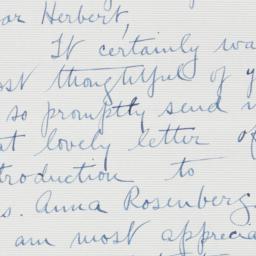 ar Herbert,
It certainly wa
st thoughtful of y
so promptly send
at lovely letter of
troduction to
s. Anna Rosenberg.
am most apprecia